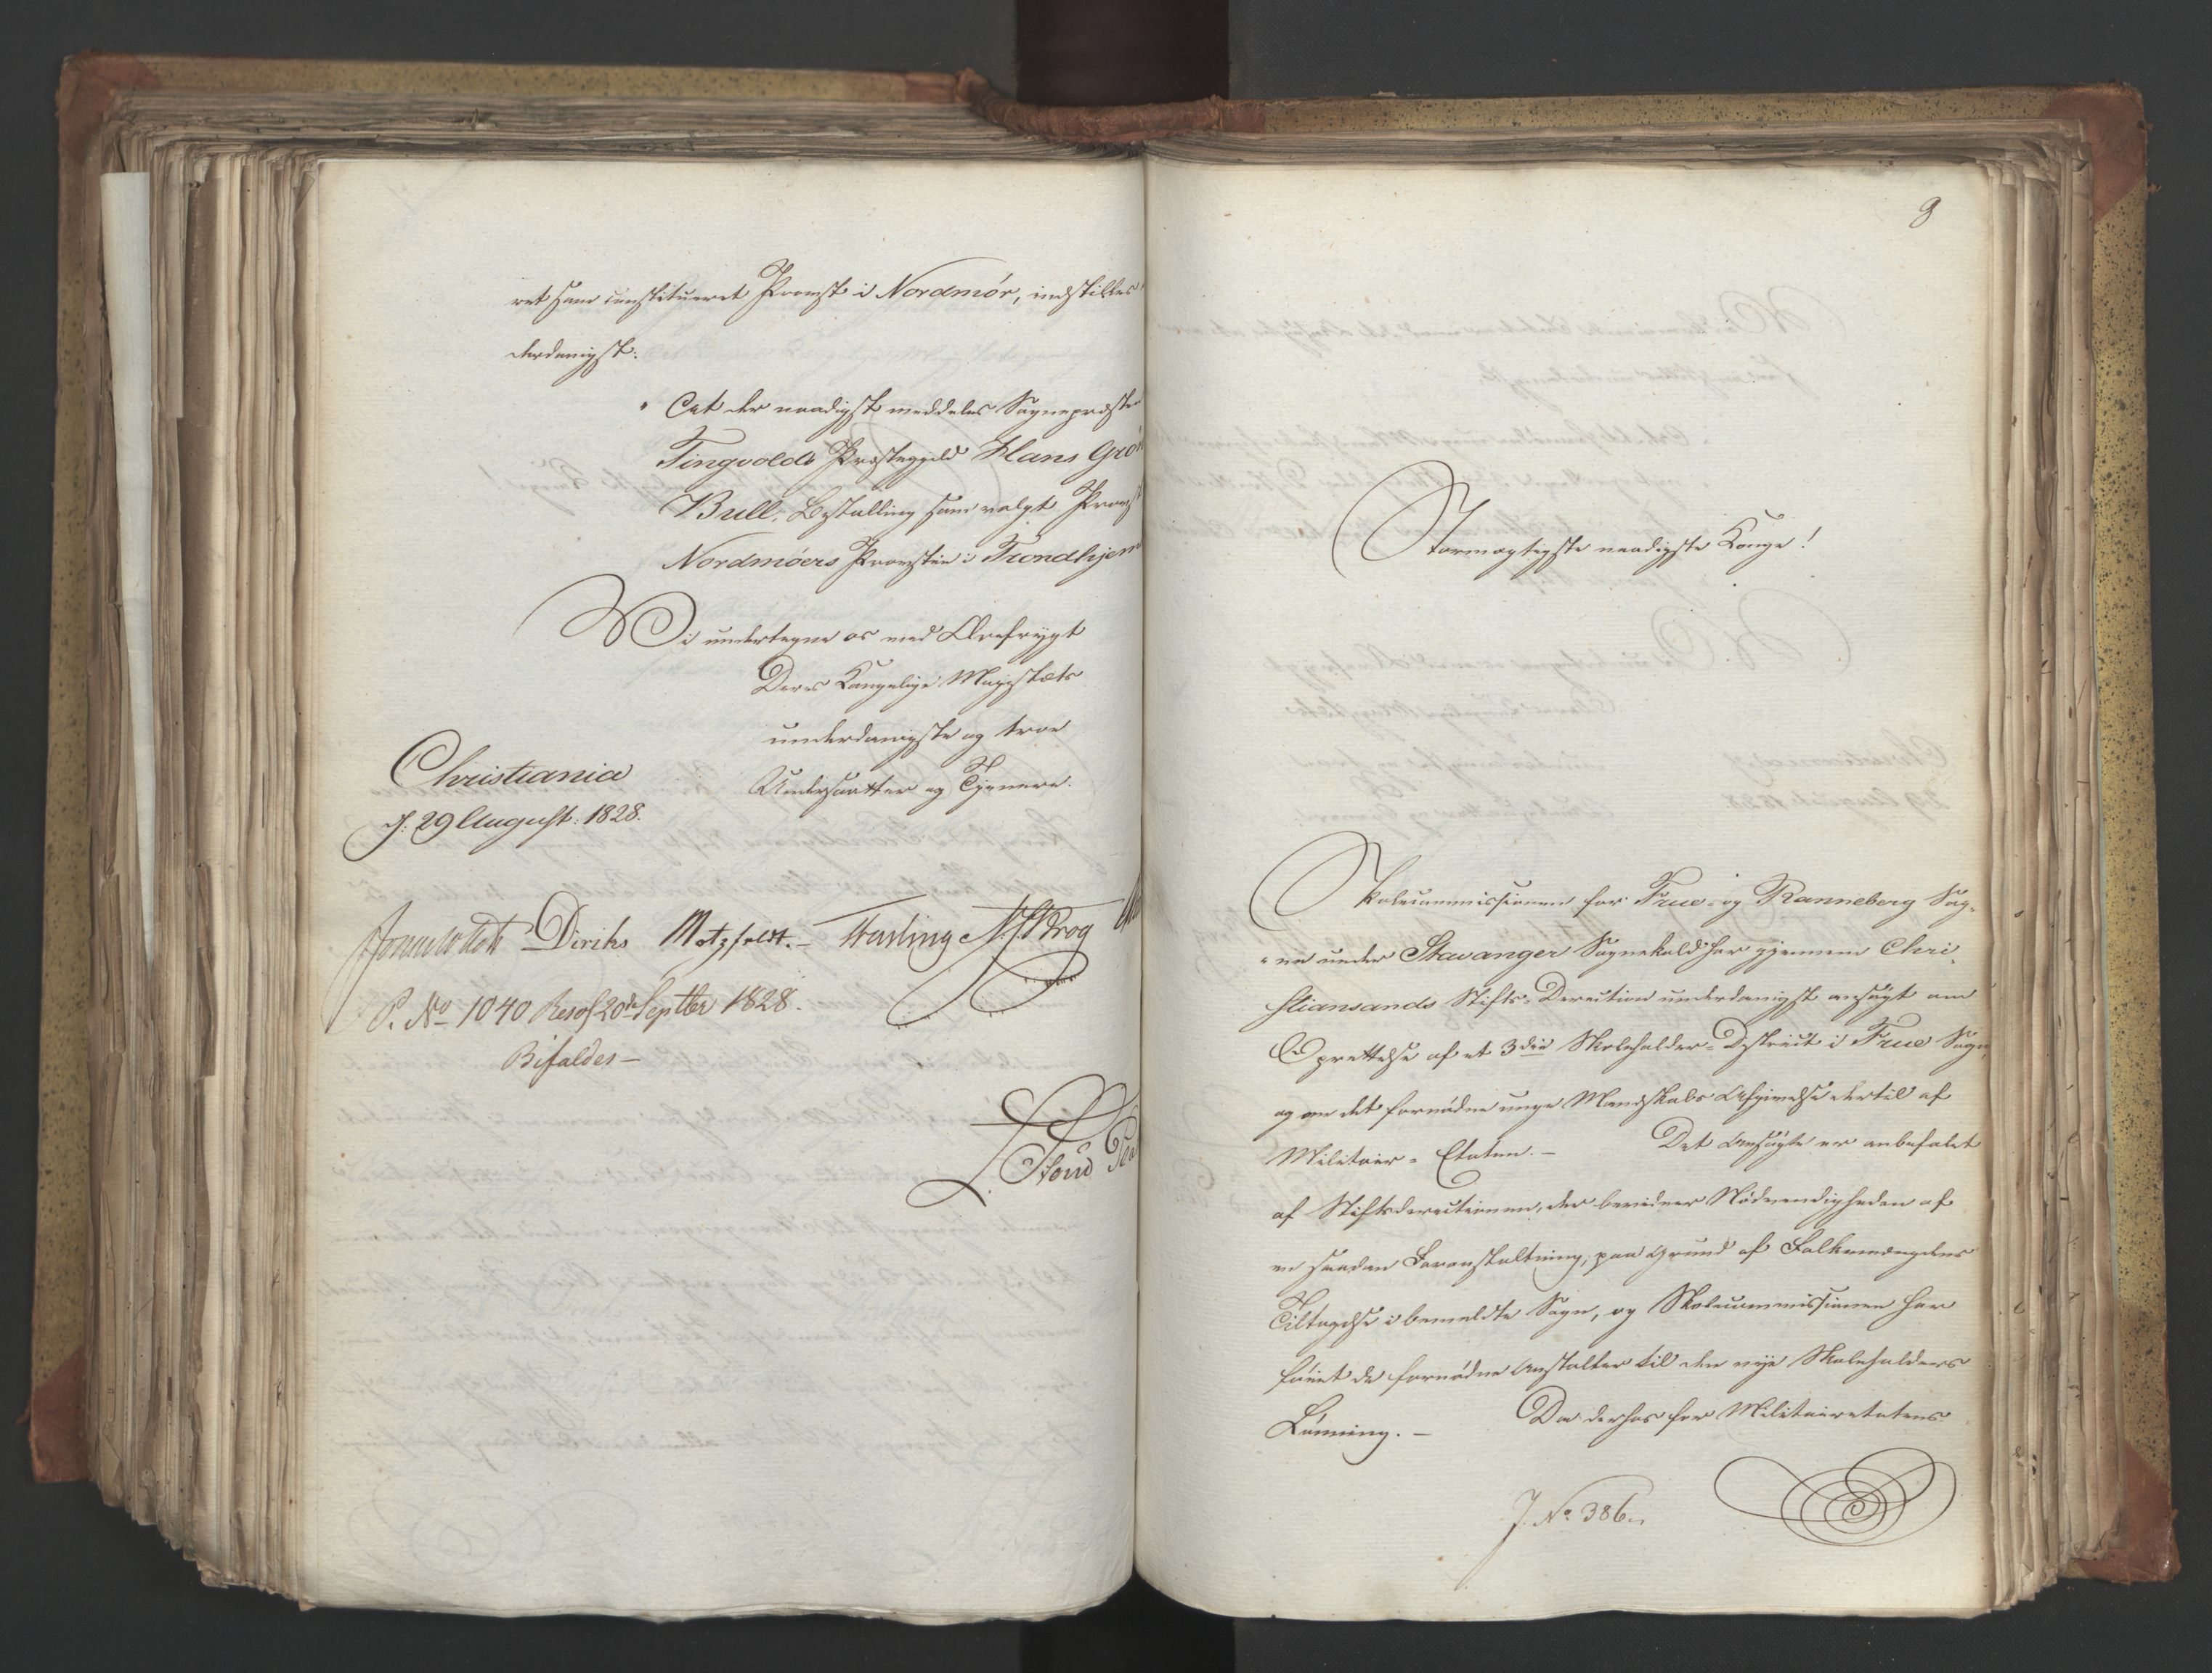 ret som constitueret Provst i Nordmör, indstilles
derdanigst:
" At der naadigst meddeles Sognepræsten
Tingvolds Præstegjeld Hans Grön
Bull, Bestalling som valgt Provst
Nordmöers Provstie i Trondhjem
Vi undertegne os med Ærefrygt
Deres Kongelige Majestæts
underdanigste og troe
Undersaatter og Tjenere.
Christiania
d: 29 August: 1828.
Diriks Motzfeldt. – Fasting N. J. Krog
P. No 1040 Resol 20de Septbr 1828.
Bifaldes –
8
Stormægtigste naadigste Konge!
Skolecommissionen for Frue- og Ranneberg Sog-
ne under Stavanger Sognekald har gjennem Chri-
stiansands Stifts-Direction underdanigst ansøgt om
Oprettelse af et 3die Skoleholder-District i Frue Sogn,
og om det fornødne unge Mandskabs Afgivelse dertil af
Militair-Etaten. – Det Ansøgte er anbefalet
af Stiftsdirectionen, der bevidner Nödvendigheden af
en saadan Foranstaltning, paa Grund af Folkemængdens
Tiltagelse i bemeldte Sogn, og Skolecommissionen har
föiet de fornødne Anstalter til den nye Skoleholders
Lönning. – Da derhos fra Militairetatens
J. No 386.